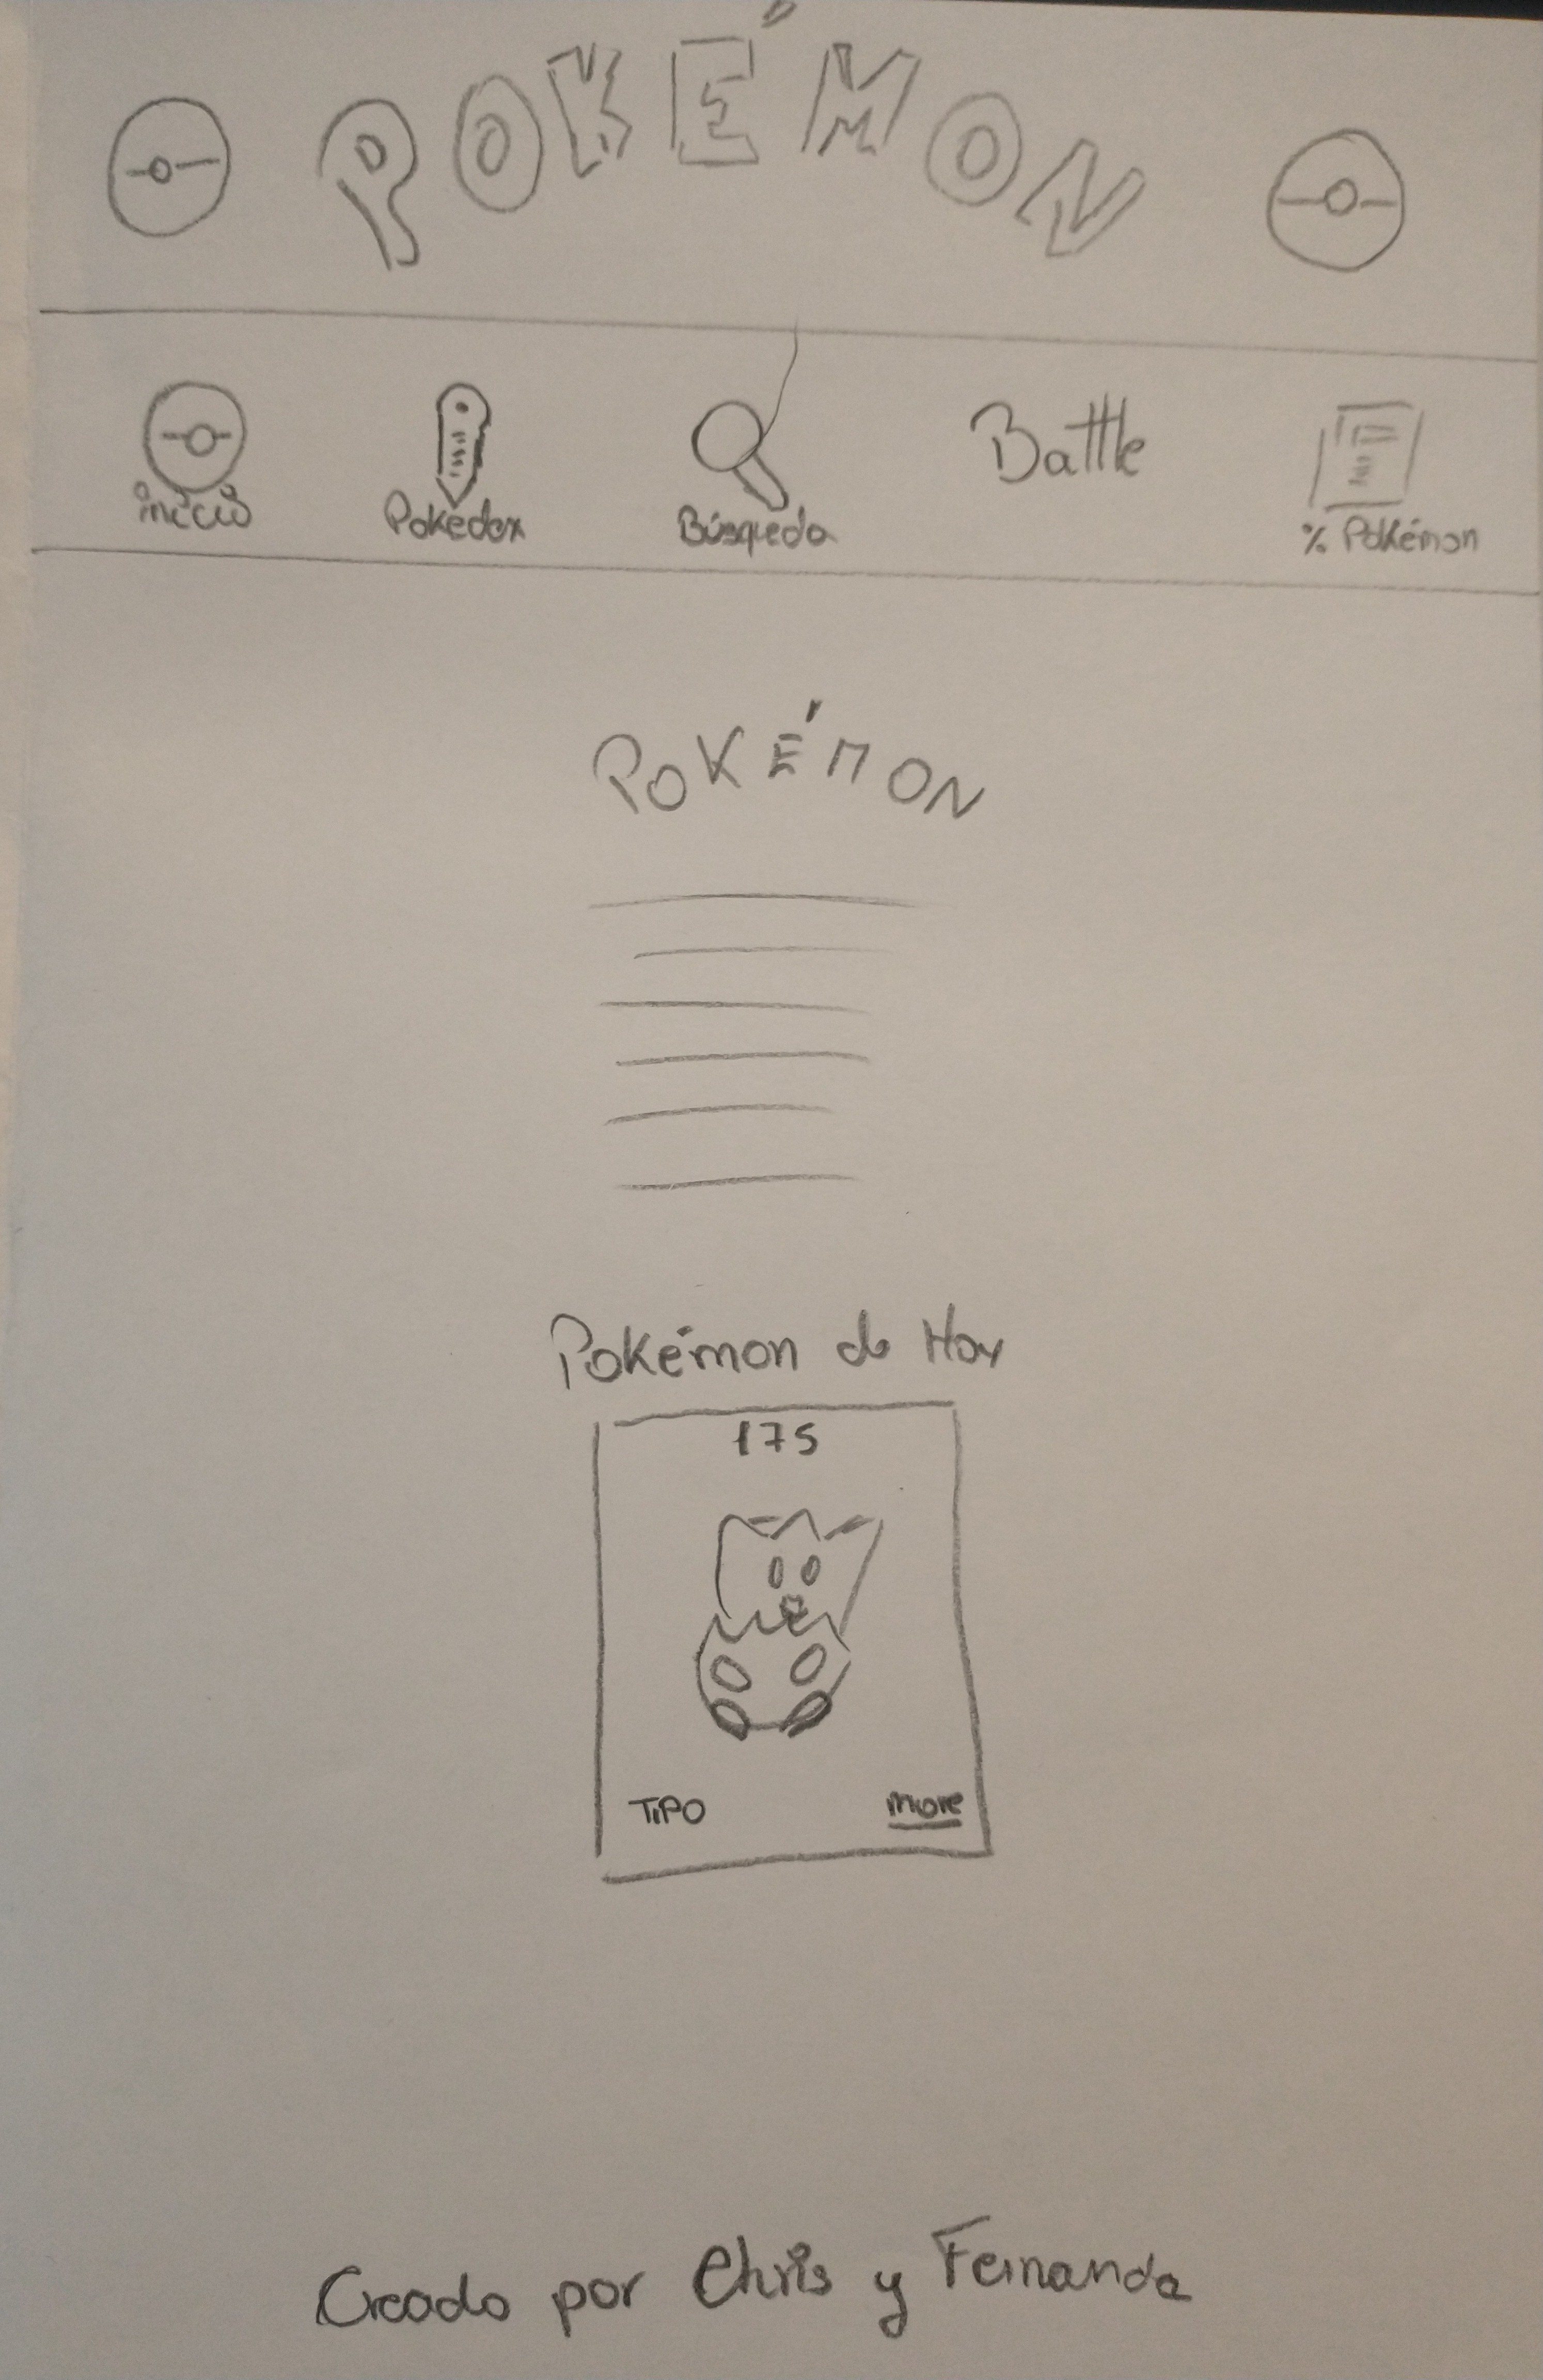 POKÉMON
inicio Pokedex Búsqueda Battle % Pokémon
POKÉMON
Pokémon de Hoy
175
TIPO more
Creado por Chris y Fernanda